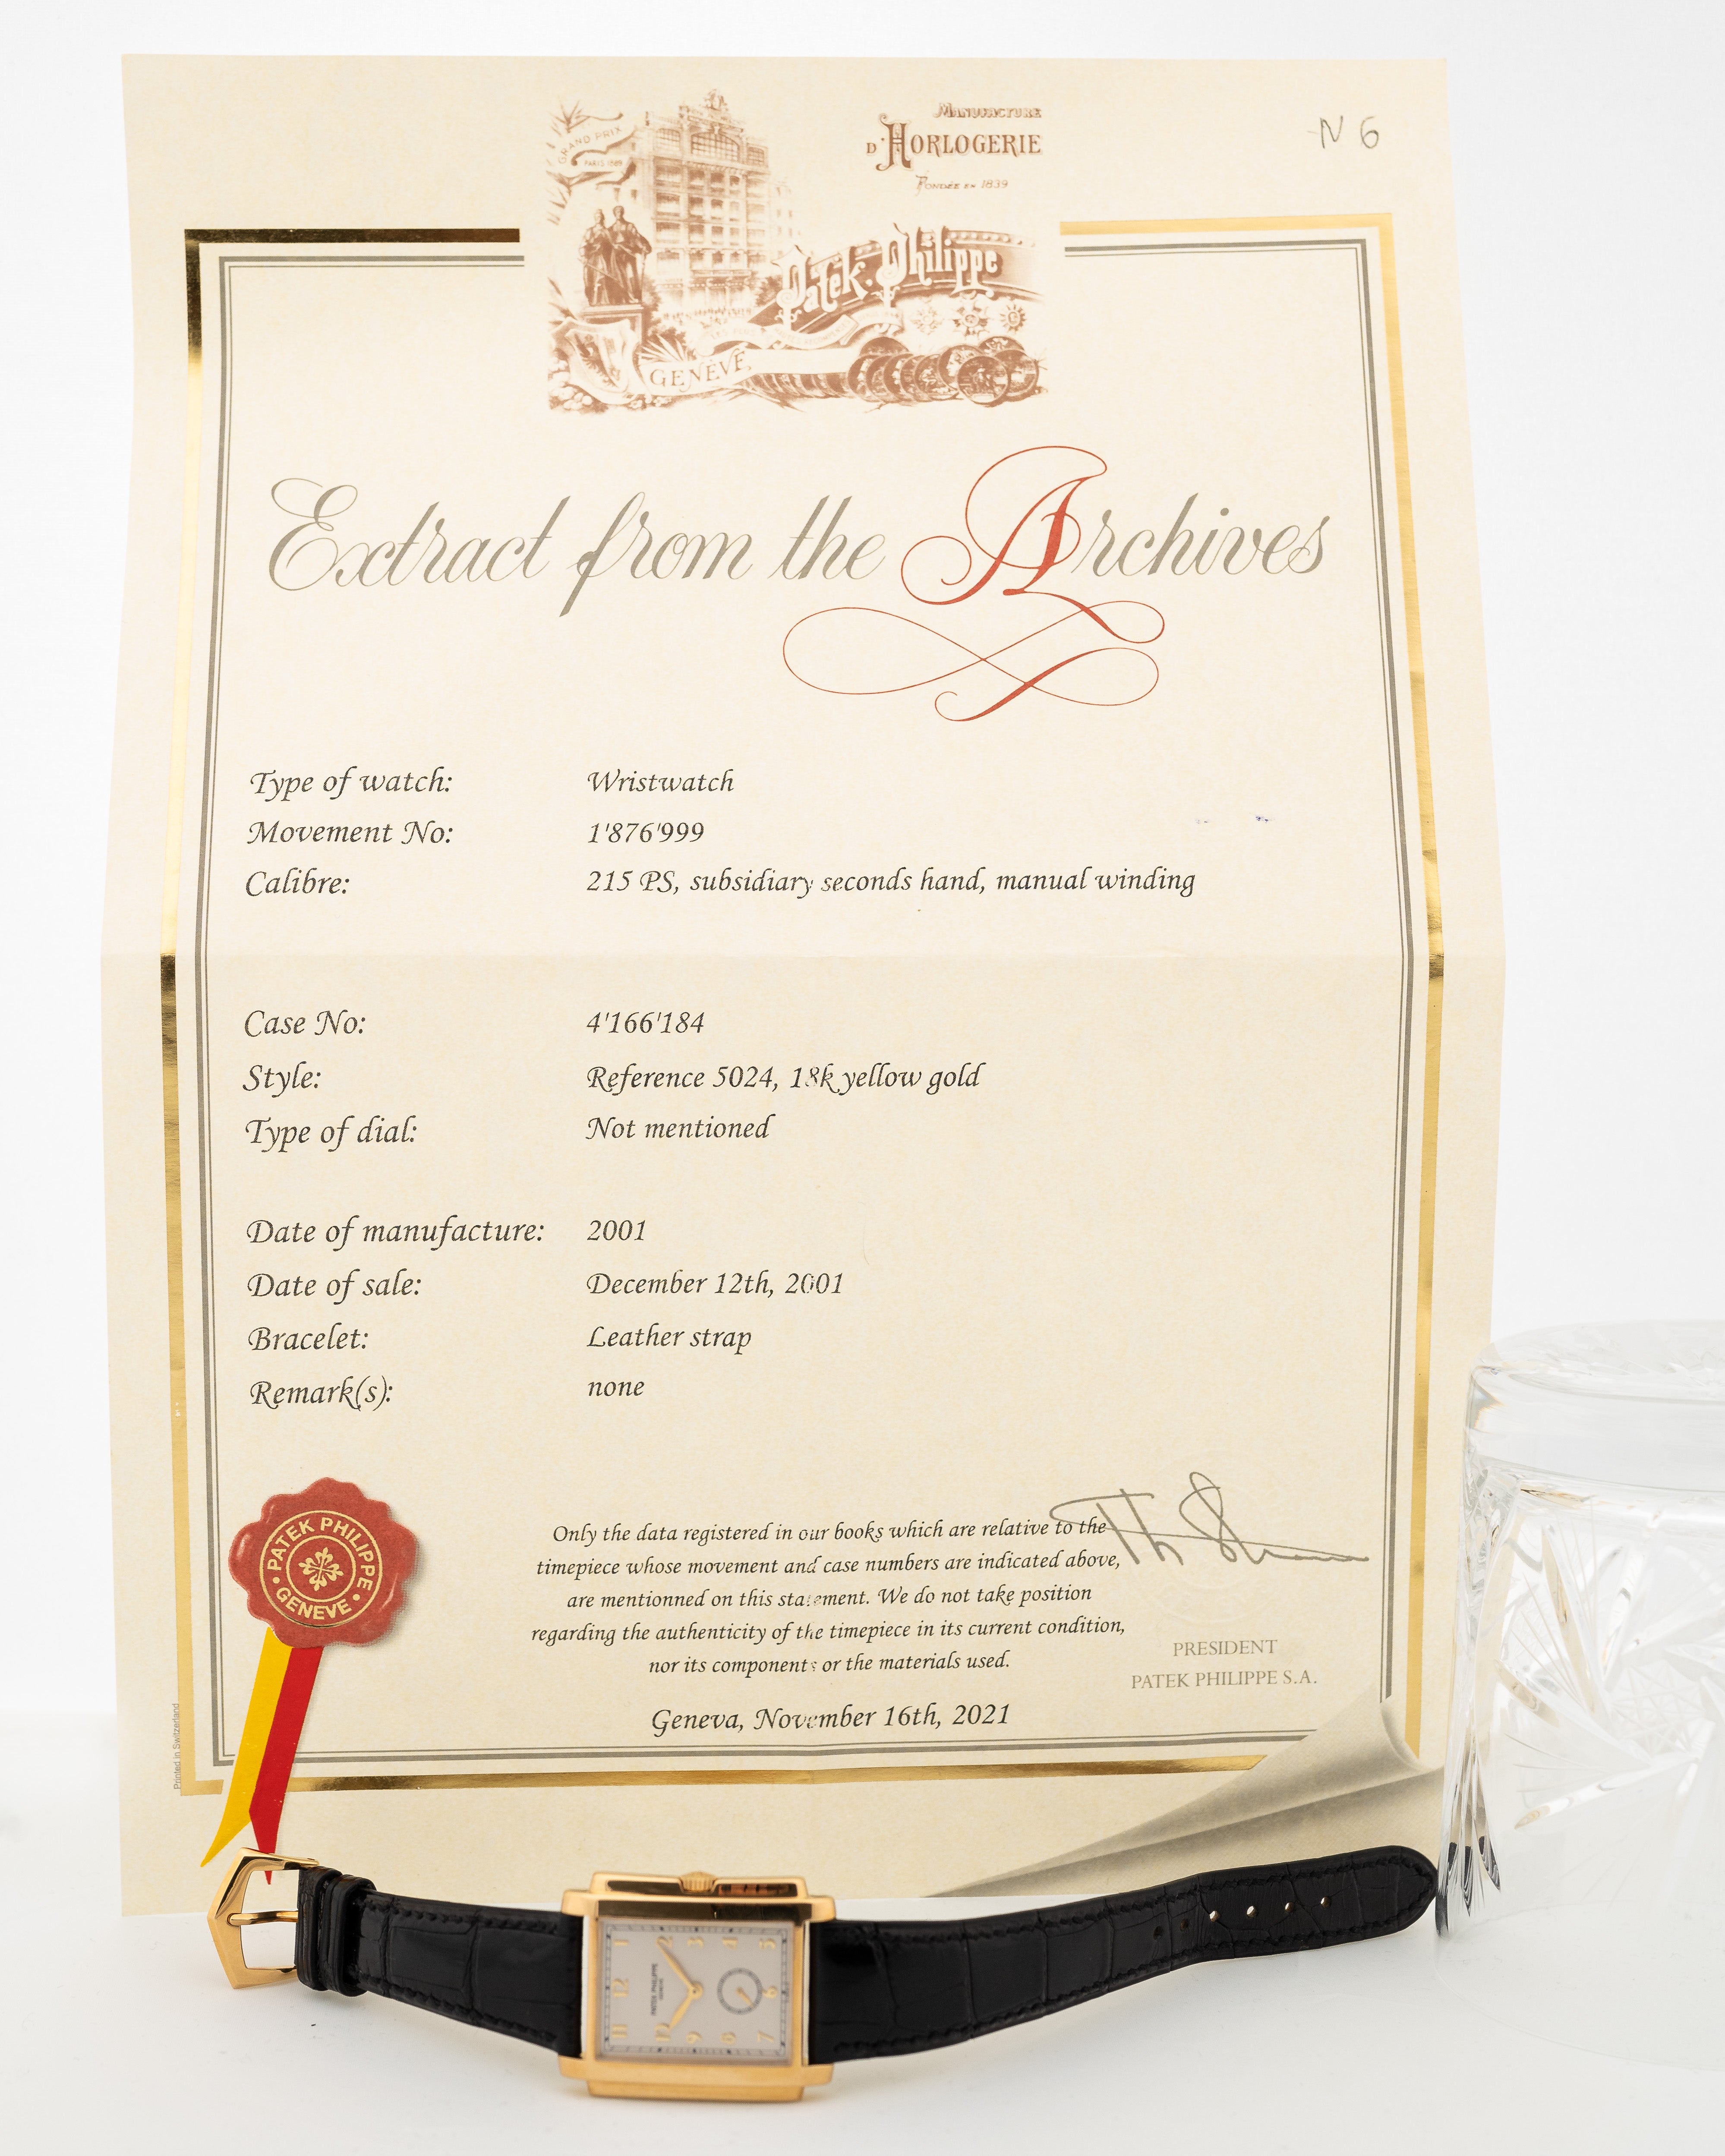 MANUFACTURE
D'HORLOGERIE
FONDÉE EN 1839
N 6
GRAND PRIX
PARIS 1889
Patek Philippe
GENÈVE
Extract from the Archives
Type of watch: Wristwatch
Movement No: 1'876'999
Calibre: 215 PS, subsidiary seconds hand, manual winding
Case No: 4'166'184
Style: Reference 5024, 18k yellow gold
Type of dial: Not mentioned
Date of manufacture: 2001
Date of sale: December 12th, 2001
Bracelet: Leather strap
Remark(s): none
PATEK PHILIPPE
GENEVE
Only the data registered in our books which are relative to the
timepiece whose movement and case numbers are indicated above,
are mentionned on this statement. We do not take position
regarding the authenticity of the timepiece in its current condition,
nor its components or the materials used.
Geneva, November 16th, 2021
PRESIDENT
PATEK PHILIPPE S.A.
Printed in Switzerland
PATEK PHILIPPE
GENEVE
11 12 1
10 2
9 3
8 4
7 6 5